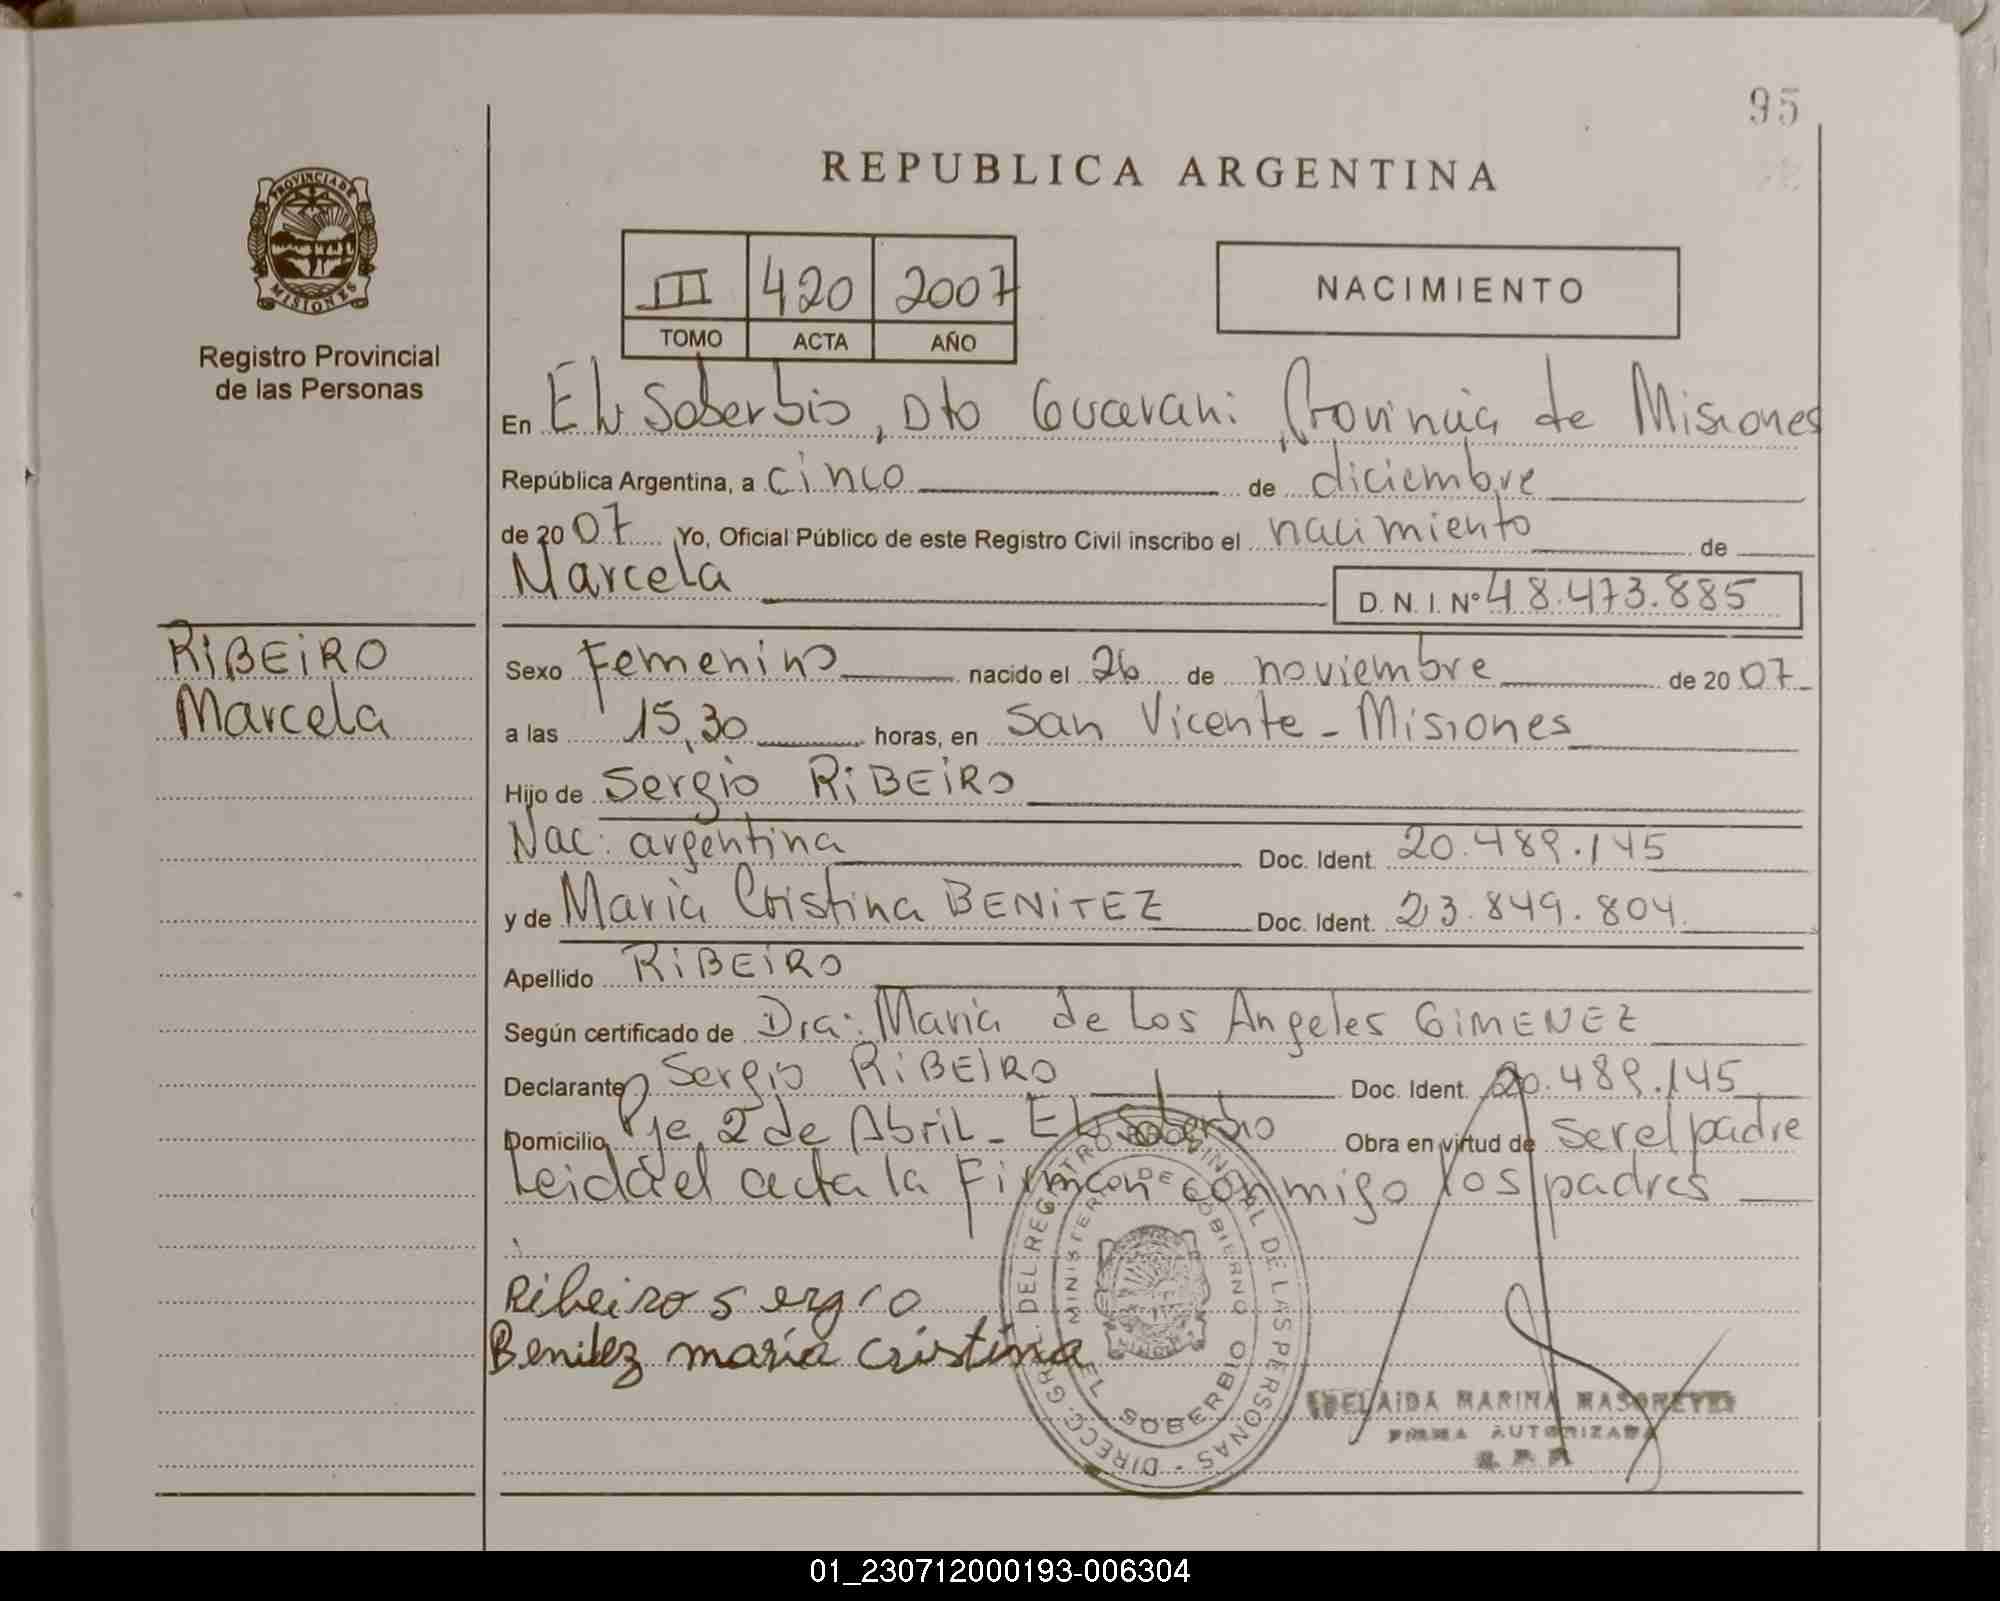 95
REPUBLICA ARGENTINA
PROVINCIA DE MISIONES
Registro Provincial
de las Personas
III 420 2007
TOMO ACTA AÑO
NACIMIENTO
En El Soberbio, Dto Guarani Provincia de Misiones
República Argentina, a cinco de diciembre
de 2007 Yo, Oficial Público de este Registro Civil inscribo el nacimiento de
Marcela D.N.I. Nº 48.473.885
RiBEiRO
Marcela
Sexo Femenino nacido el 26 de noviembre de 2007
a las 15,30 horas, en San Vicente - Misiones
Hijo de Sergio RiBEiRO
Nac: argentina Doc. Ident. 20.489.145
y de Maria Cristina BENiTEZ Doc. Ident. 23.849.804
Apellido RiBEiRO
Según certificado de Dra: Maria de Los Angeles GiMENEZ
Declarante Sergio RiBEIRO Doc. Ident. 20.489.145
Domicilio Pje 2 de Abril - El Soberbio Obra en virtud de ser el padre
Leida el acta la Firman conmigo los padres
Ribeiro sergio
Benitez maria cristina
DIRECC. GRAL. DEL REGISTRO PROVINCIAL DE LAS PERSONAS
MINISTERIO DE GOBIERNO
EL SOBERBIO
ADELAIDA MARINA
FIRMA AUTORIZADA
01_230712000193-006304